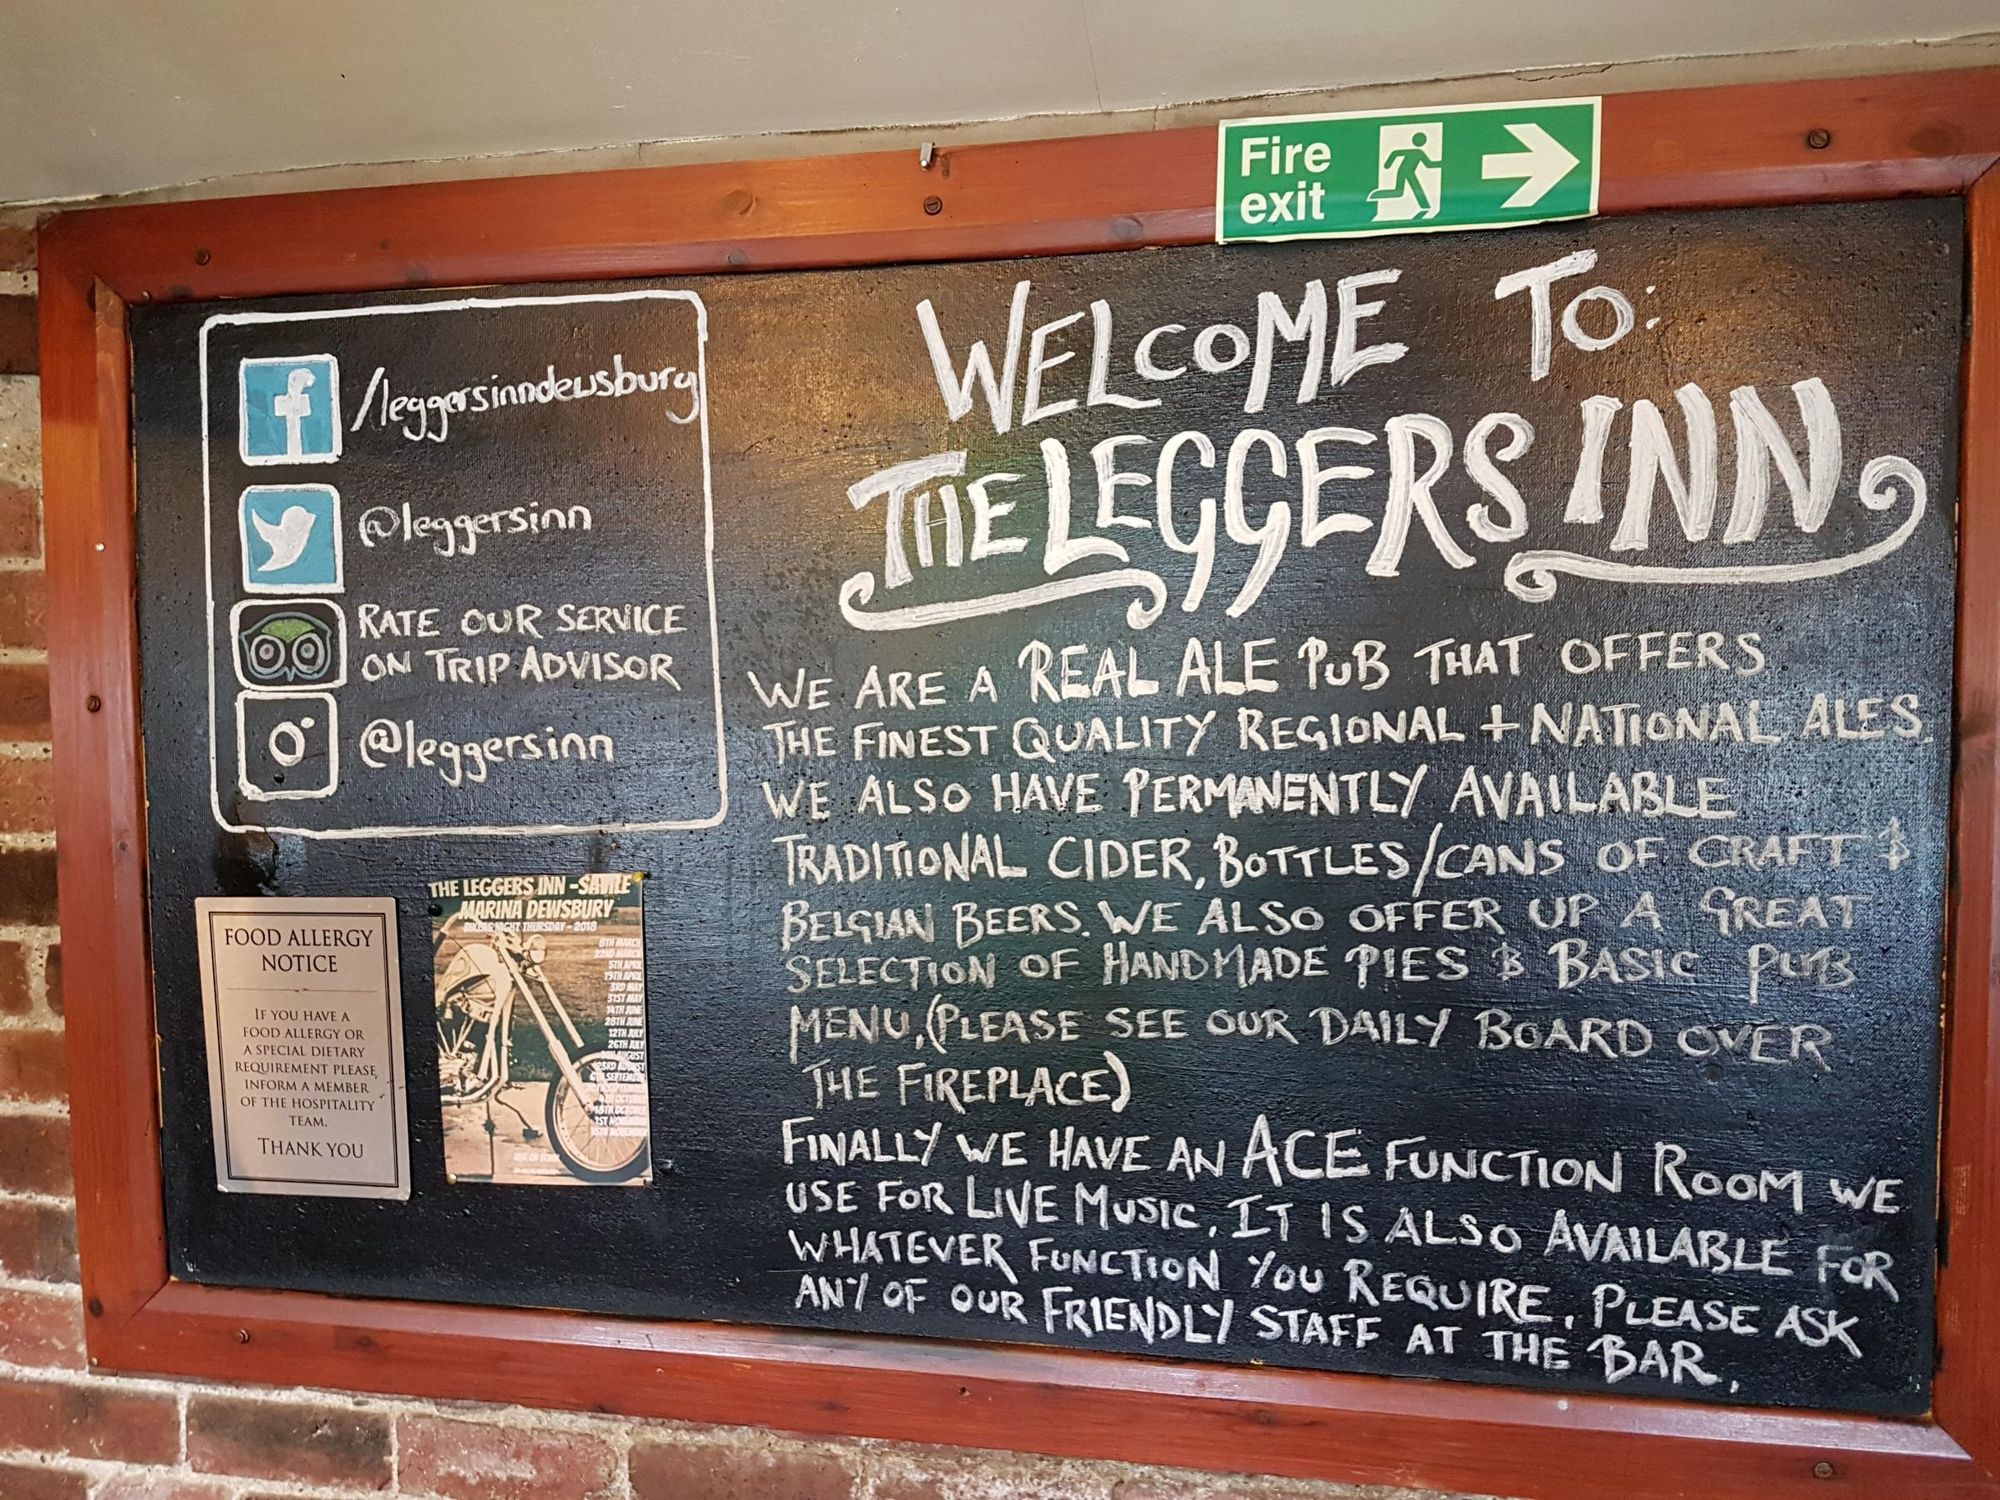 Fire
exit
/leggersinndewsbury
@leggersinn
RATE OUR SERVICE
ON TRIP ADVISOR
@leggersinn
FOOD ALLERGY
NOTICE
IF YOU HAVE A
FOOD ALLERGY OR
A SPECIAL DIETARY
REQUIREMENT PLEASE
INFORM A MEMBER
OF THE HOSPITALITY
TEAM.
THANK YOU
THE LEGGERS INN - SAVILE
MARINA DEWSBURY
BIKERS NIGHT THURSDAY - 2018
8TH MARCH
22ND MARCH
5TH APRIL
19TH APRIL
3RD MAY
31ST MAY
14TH JUNE
28TH JUNE
12TH JULY
26TH JULY
AUGUST
23RD AUGUST
SEPTEMBER
OCTOBER
18TH OCTOBER
1ST NOVEMBER
15TH NOVEMBER
WELCOME TO:
THE LEGGERS INN
WE ARE A REAL ALE PUB THAT OFFERS
THE FINEST QUALITY REGIONAL + NATIONAL ALES.
WE ALSO HAVE PERMANENTLY AVAILABLE
TRADITIONAL CIDER, BOTTLES/CANS OF CRAFT &
BELGIAN BEERS. WE ALSO OFFER UP A GREAT
SELECTION OF HANDMADE PIES & BASIC PUB
MENU, (PLEASE SEE OUR DAILY BOARD OVER
THE FIREPLACE)
FINALLY WE HAVE AN ACE FUNCTION ROOM WE
USE FOR LIVE MUSIC. IT IS ALSO AVAILABLE FOR
WHATEVER FUNCTION YOU REQUIRE. PLEASE ASK
ANY OF OUR FRIENDLY STAFF AT THE BAR.